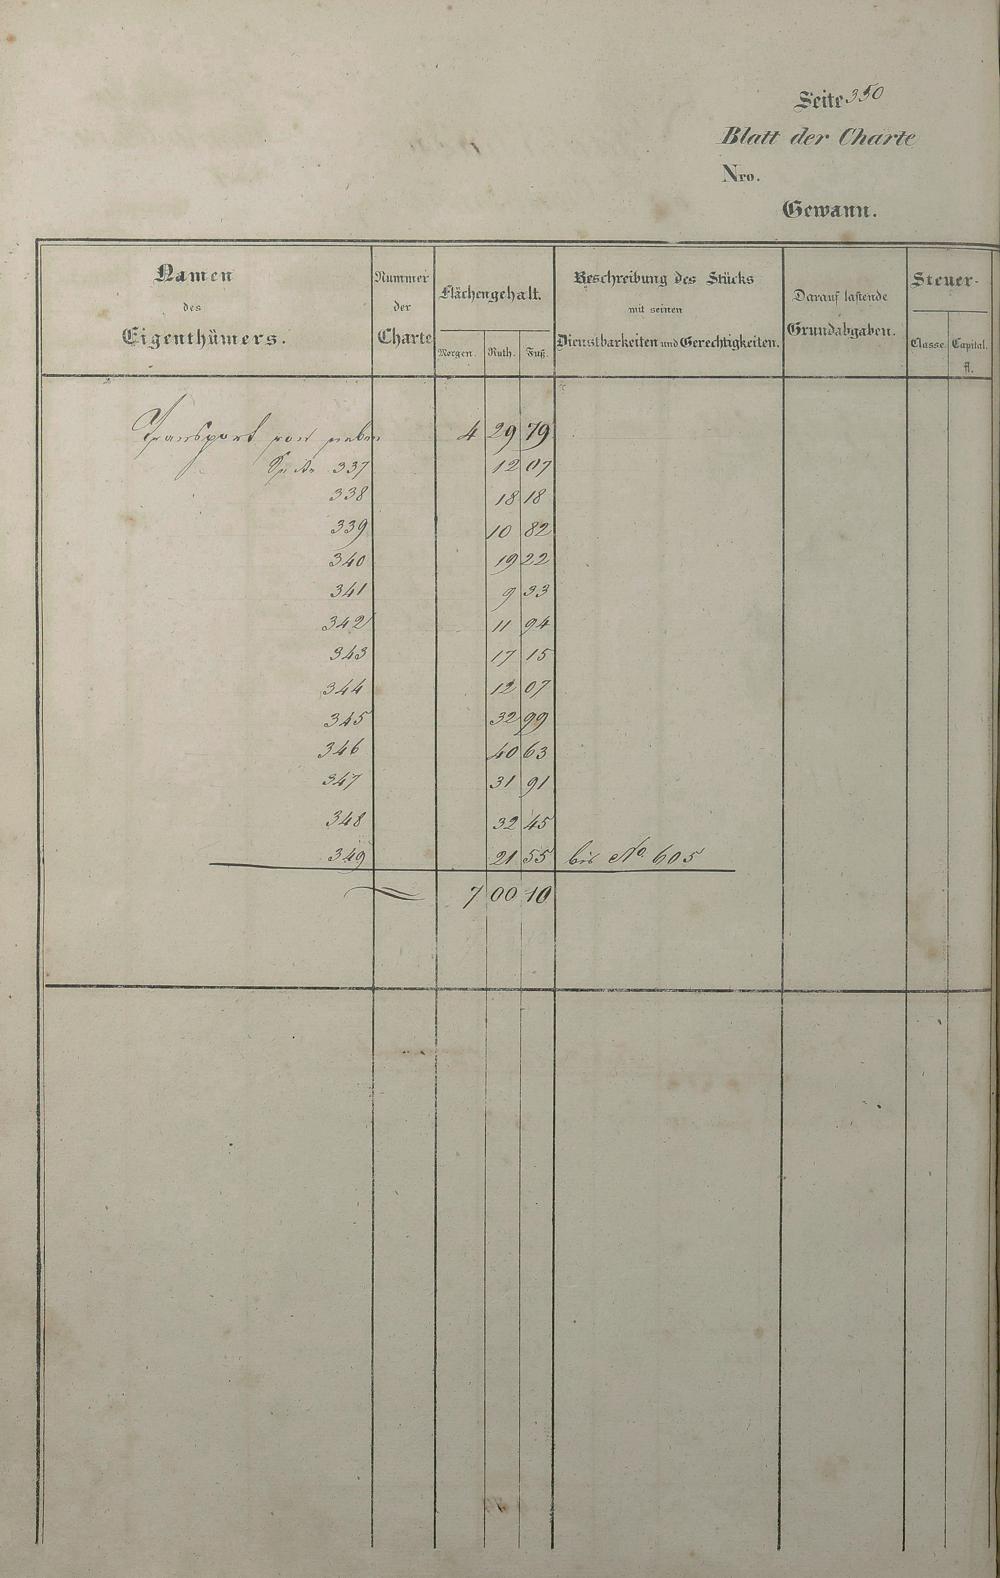 Seite 350
Blatt der Charte
Nro.
Gewann.
Namen des Eigenthümers. Nummer der Charte Flächengehalt. Morgen. Ruth. Fuß. Beschreibung des Stücks mit seinen Dienstbarkeiten und Gerechtigkeiten. Darauf lastende Grundabgaben. Steuer- Classe Capital. fl.
Transport von neben 4 29 79
Seite 337 12 07
338 18 18
339 10 82
340 19 22
341 9 33
342 11 94
343 17 15
344 12 07
345 32 99
346 40 63
347 31 91
348 32 45
349 21 55 bis No. 605
7 00 10